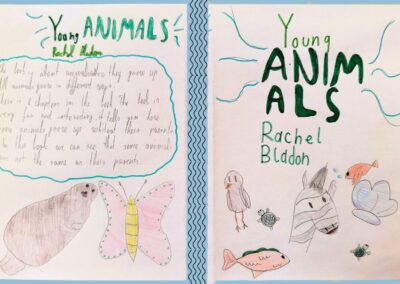 Young ANIMALS
Rachel Bladon
The book is about animals they grow up
All animals grow in different ways.
There is 4 chapters in the book. The book is
very fun and interesting it tells you how
many animals grow up without their parents
In this book we can see that some animals
are not the same as their parents.
Young
ANIM
ALS
Rachel
Bladon